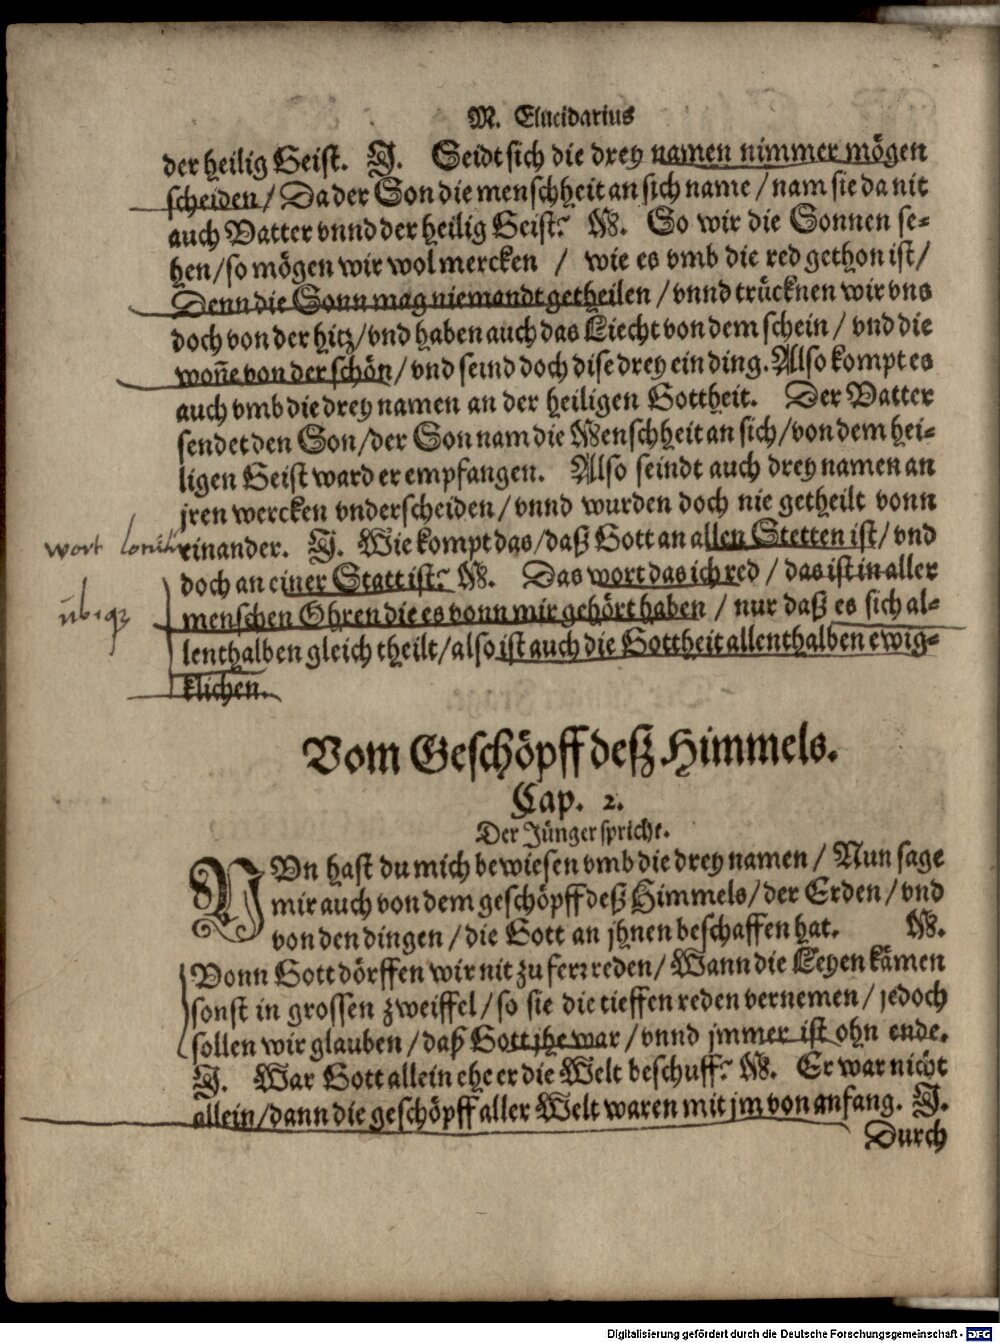 M. Elucidarius
der heilig Geist. J. Seidt sich die drey namen nimmer mögen
scheiden / Da der Son die menschheit an sich name / nam sie da nit
auch Vatter vnnd der heilig Geist? M. So wir die Sonnen se-
hen / so mögen wir wol mercken / wie es vmb die red gethon ist /
Denn die Sonn mag niemandt getheilen / vnnd trücknen wir vns
doch von der hitz / vnd haben auch das Liecht von dem schein / vnd die
woñe von der schön / vnd seind doch dise drey ein ding. Also kompt es
auch vmb die drey namen an der heiligen Gottheit. Der Vatter
sendet den Son / der Son nam die Menschheit an sich / von dem hei-
ligen Geist ward er empfangen. Also seindt auch drey namen an
jren wercken vnderscheiden / vnnd wurden doch nie getheilt vonn
einander. J. Wie kompt das / daß Gott an allen Stetten ist / vnd
wort
doch an einer Statt ist? M. Das wort das ich red / das ist in aller
menschen Ohren die es vonn mir gehört haben / nur daß es sich al-
lenthalben gleich theilt / also ist auch die Gottheit allenthalben ewig-
klichen.
Vom Geschöpff deß Himmels.
Cap. 2.
Der Jünger spricht.
NVn hast du mich bewiesen vmb die drey namen / Nun sage
mir auch von dem geschöpff deß Himmels / der Erden / vnd
von den dingen / die Gott an jhnen beschaffen hat. M.
Vonn Gott dörffen wir nit zu ferr reden / Wann die Leyen kämen
sonst in grossen zweiffel / so sie die tieffen reden vernemen / jedoch
sollen wir glauben / daß Gott jhe war / vnnd jmmer ist ohn ende.
J. War Gott allein ehe er die Welt beschuff? M. Er war nicht
allein / dann die geschöpff aller Welt waren mit jm von anfang. J.
Durch
Digitalisierung gefördert durch die Deutsche Forschungsgemeinschaft - DFG